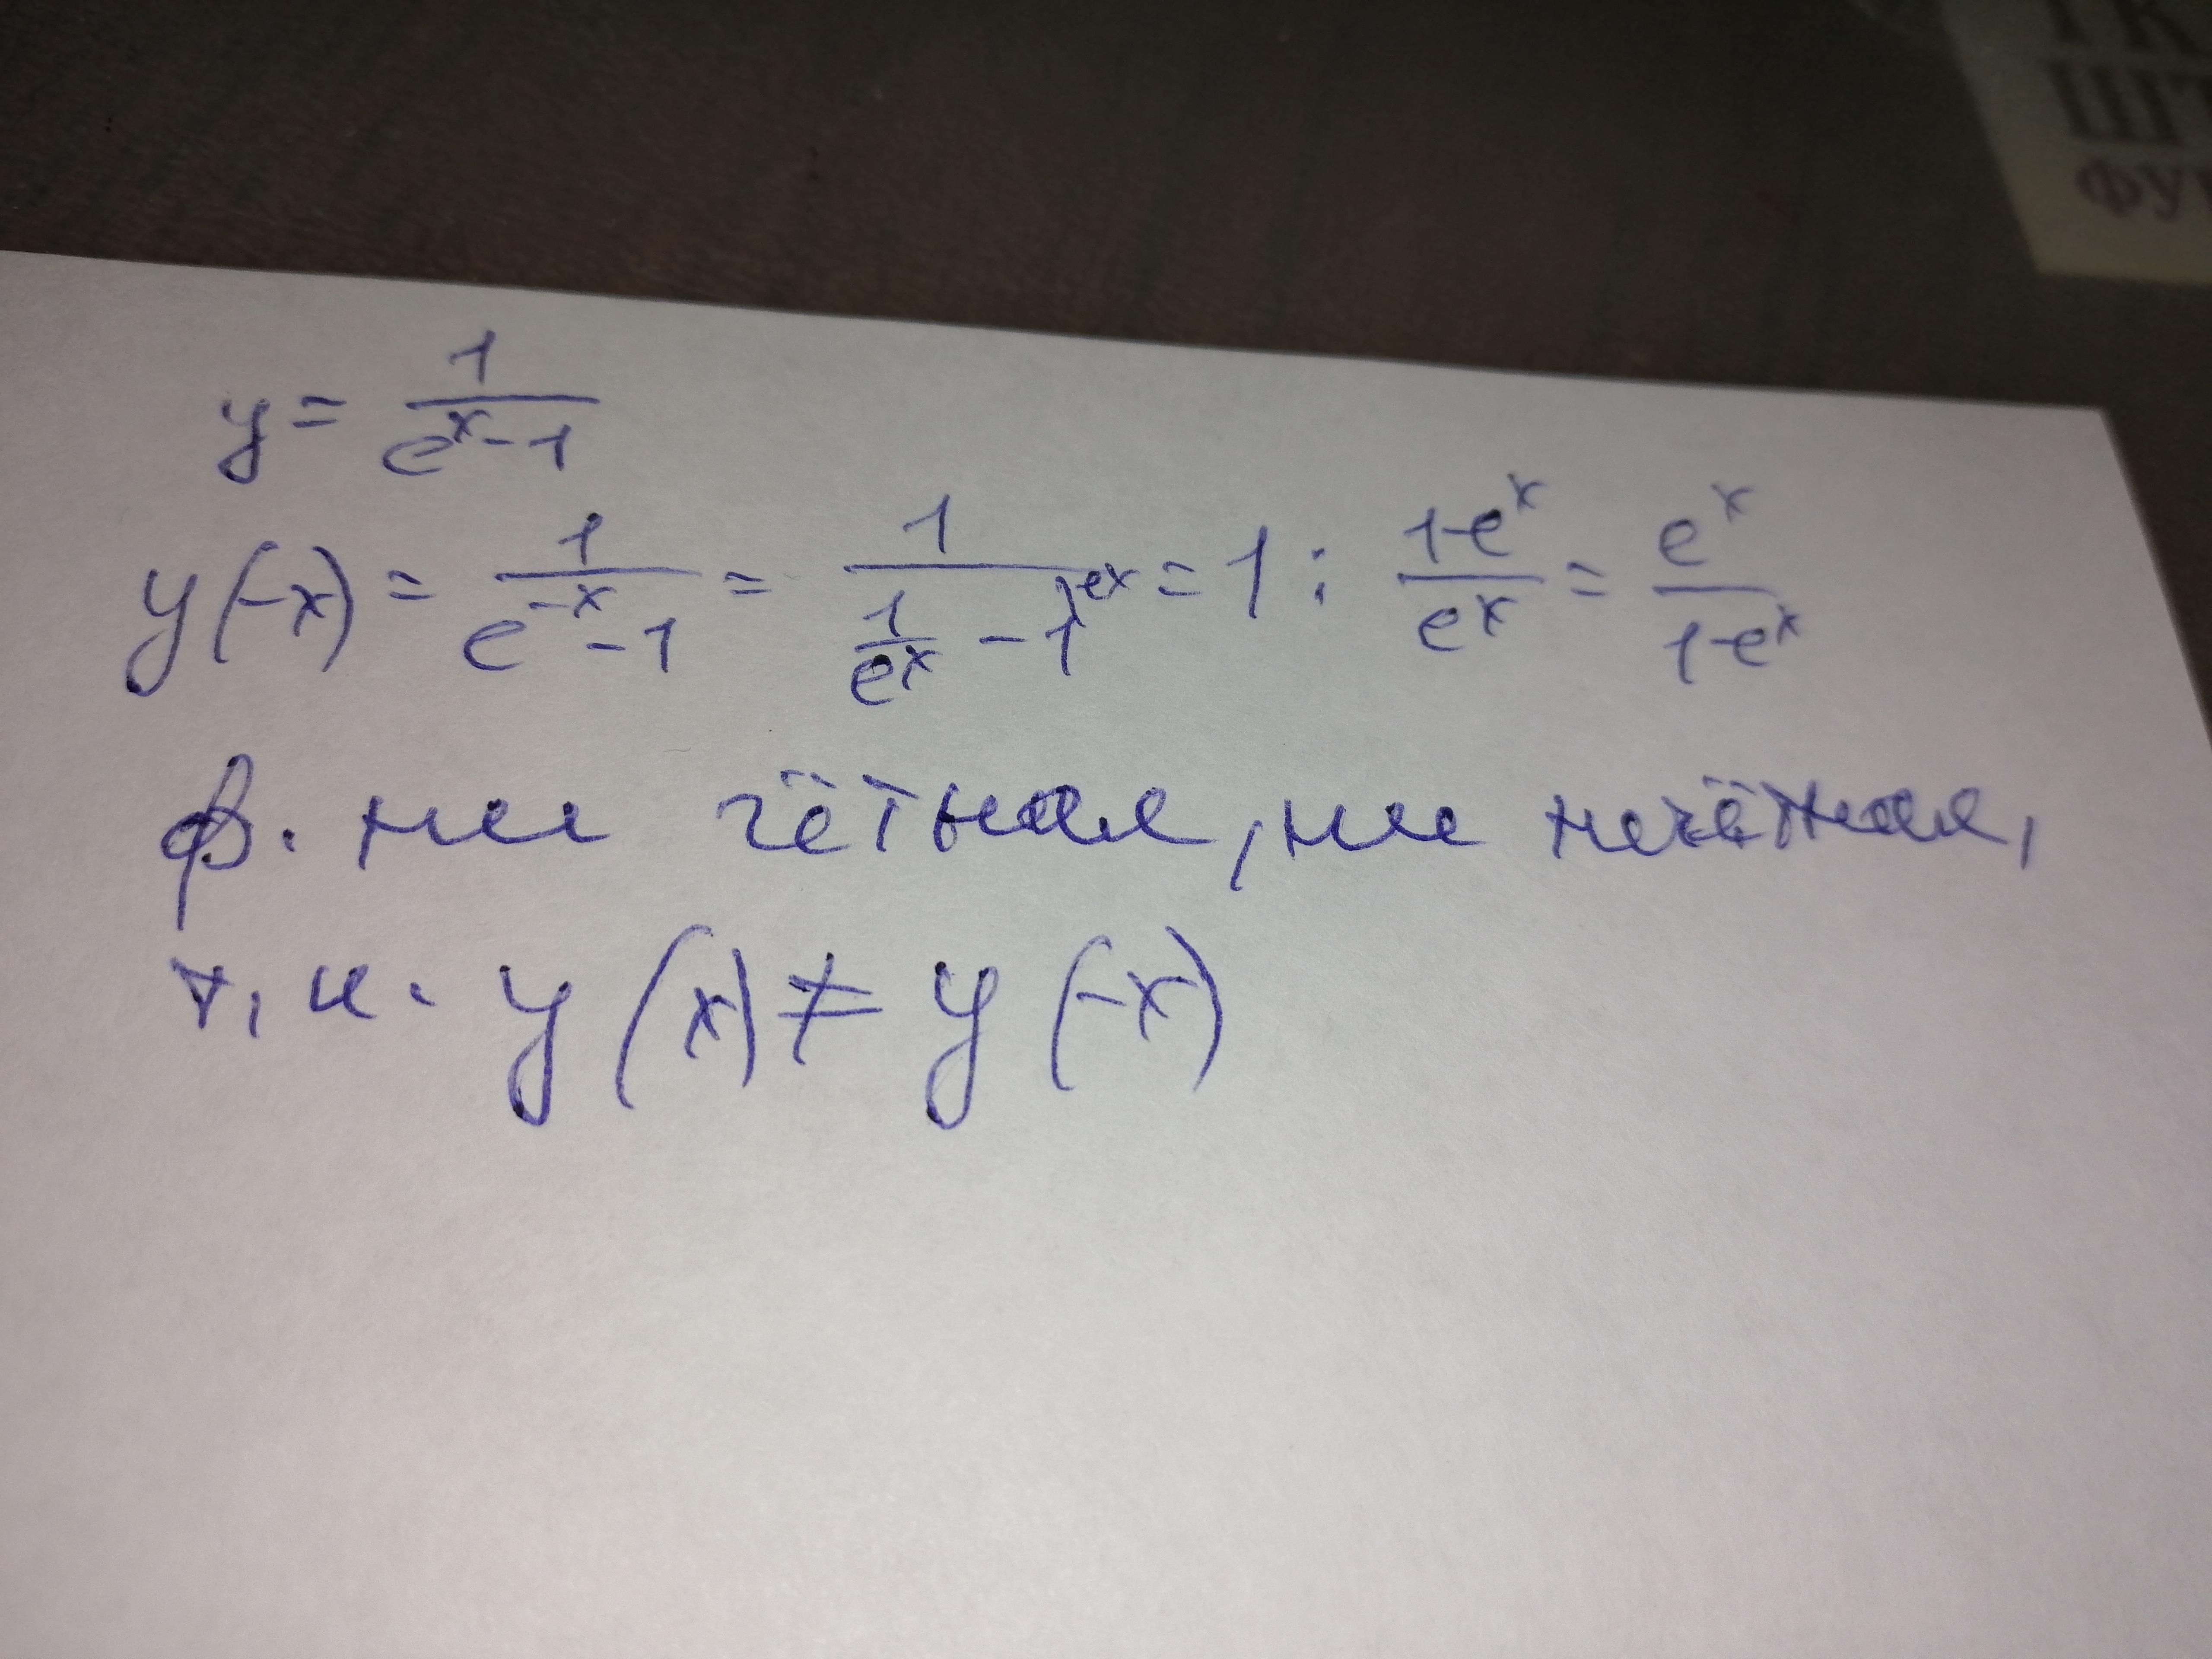 y = 1/(e^x - 1)
y(-x) = 1/(e^-x - 1) = 1/(1/e^x - 1)^ex = 1 : (1-e^x)/e^x = e^x/(1-e^x)
ф. ни чётная, ни нечётная,
т, к. y(x) ≠ y(-x)
ШТ